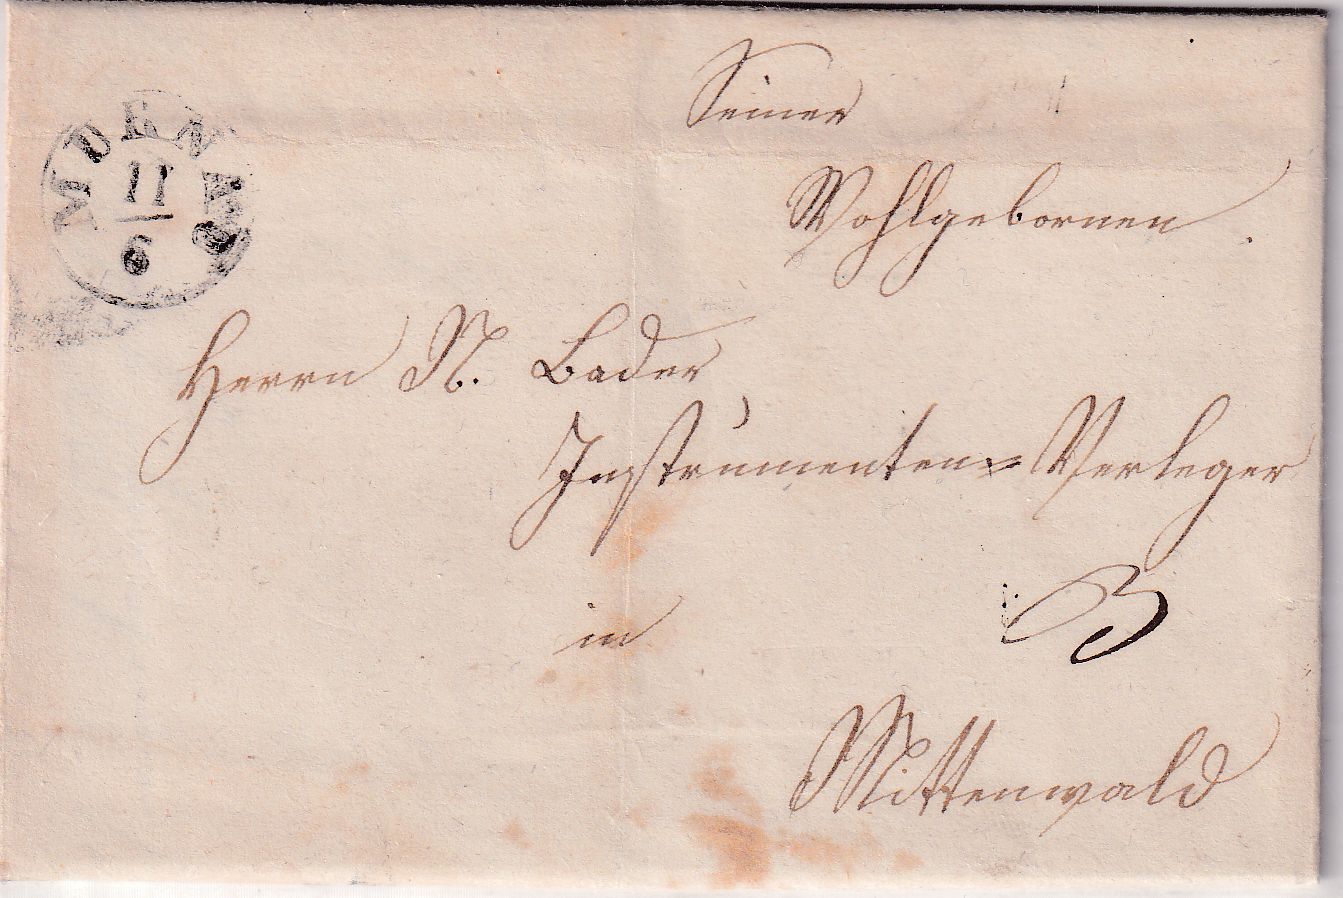 MURNAU
11
6
Seiner
Wohlgebornen
Herrn N. Bader
Instrumenten=Verleger
3
in
Mittenwald